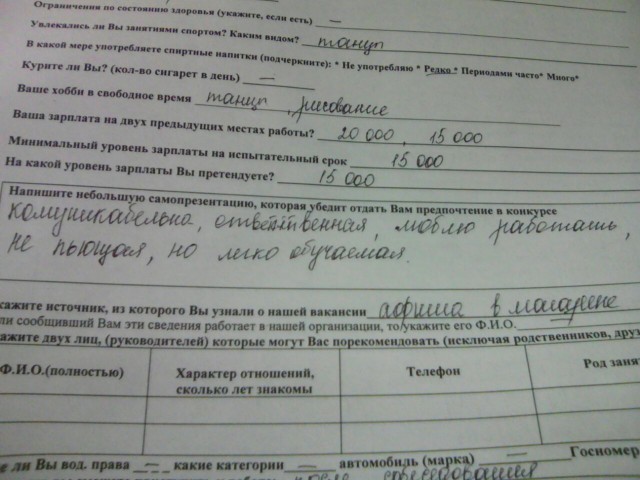 Ограничения по состоянию здоровья (укажите, если есть) —
Увлекались ли Вы занятиями спортом? Каким видом? танцы
В какой мере употребляете спиртные напитки (подчеркните): * Не употребляю * Редко * Периодами часто* Много*
Курите ли Вы? (кол-во сигарет в день) —
Ваше хобби в свободное время танцы, рисование
Ваша зарплата на двух предыдущих местах работы? 20 000, 15 000
Минимальный уровень зарплаты на испытательный срок 15 000
На какой уровень зарплаты Вы претендуете? 15 000
Напишите небольшую самопрезентацию, которая убедит отдать Вам предпочтение в конкурсе
комуникабельна, ответственная, люблю работать,
не пьющая, но легко обучаемая.
кажите источник, из которого Вы узнали о нашей вакансии афиша в магазине
ли сообщивший Вам эти сведения работает в нашей организации, то укажите его Ф.И.О.
кажите двух лиц, (руководителей) которые могут Вас порекомендовать (исключая родственников, друз
Ф.И.О.(полностью) Характер отношений, Телефон Род заня
сколько лет знакомы
е ли Вы вод. права — какие категории — автомобиль (марка) — Госномер
после